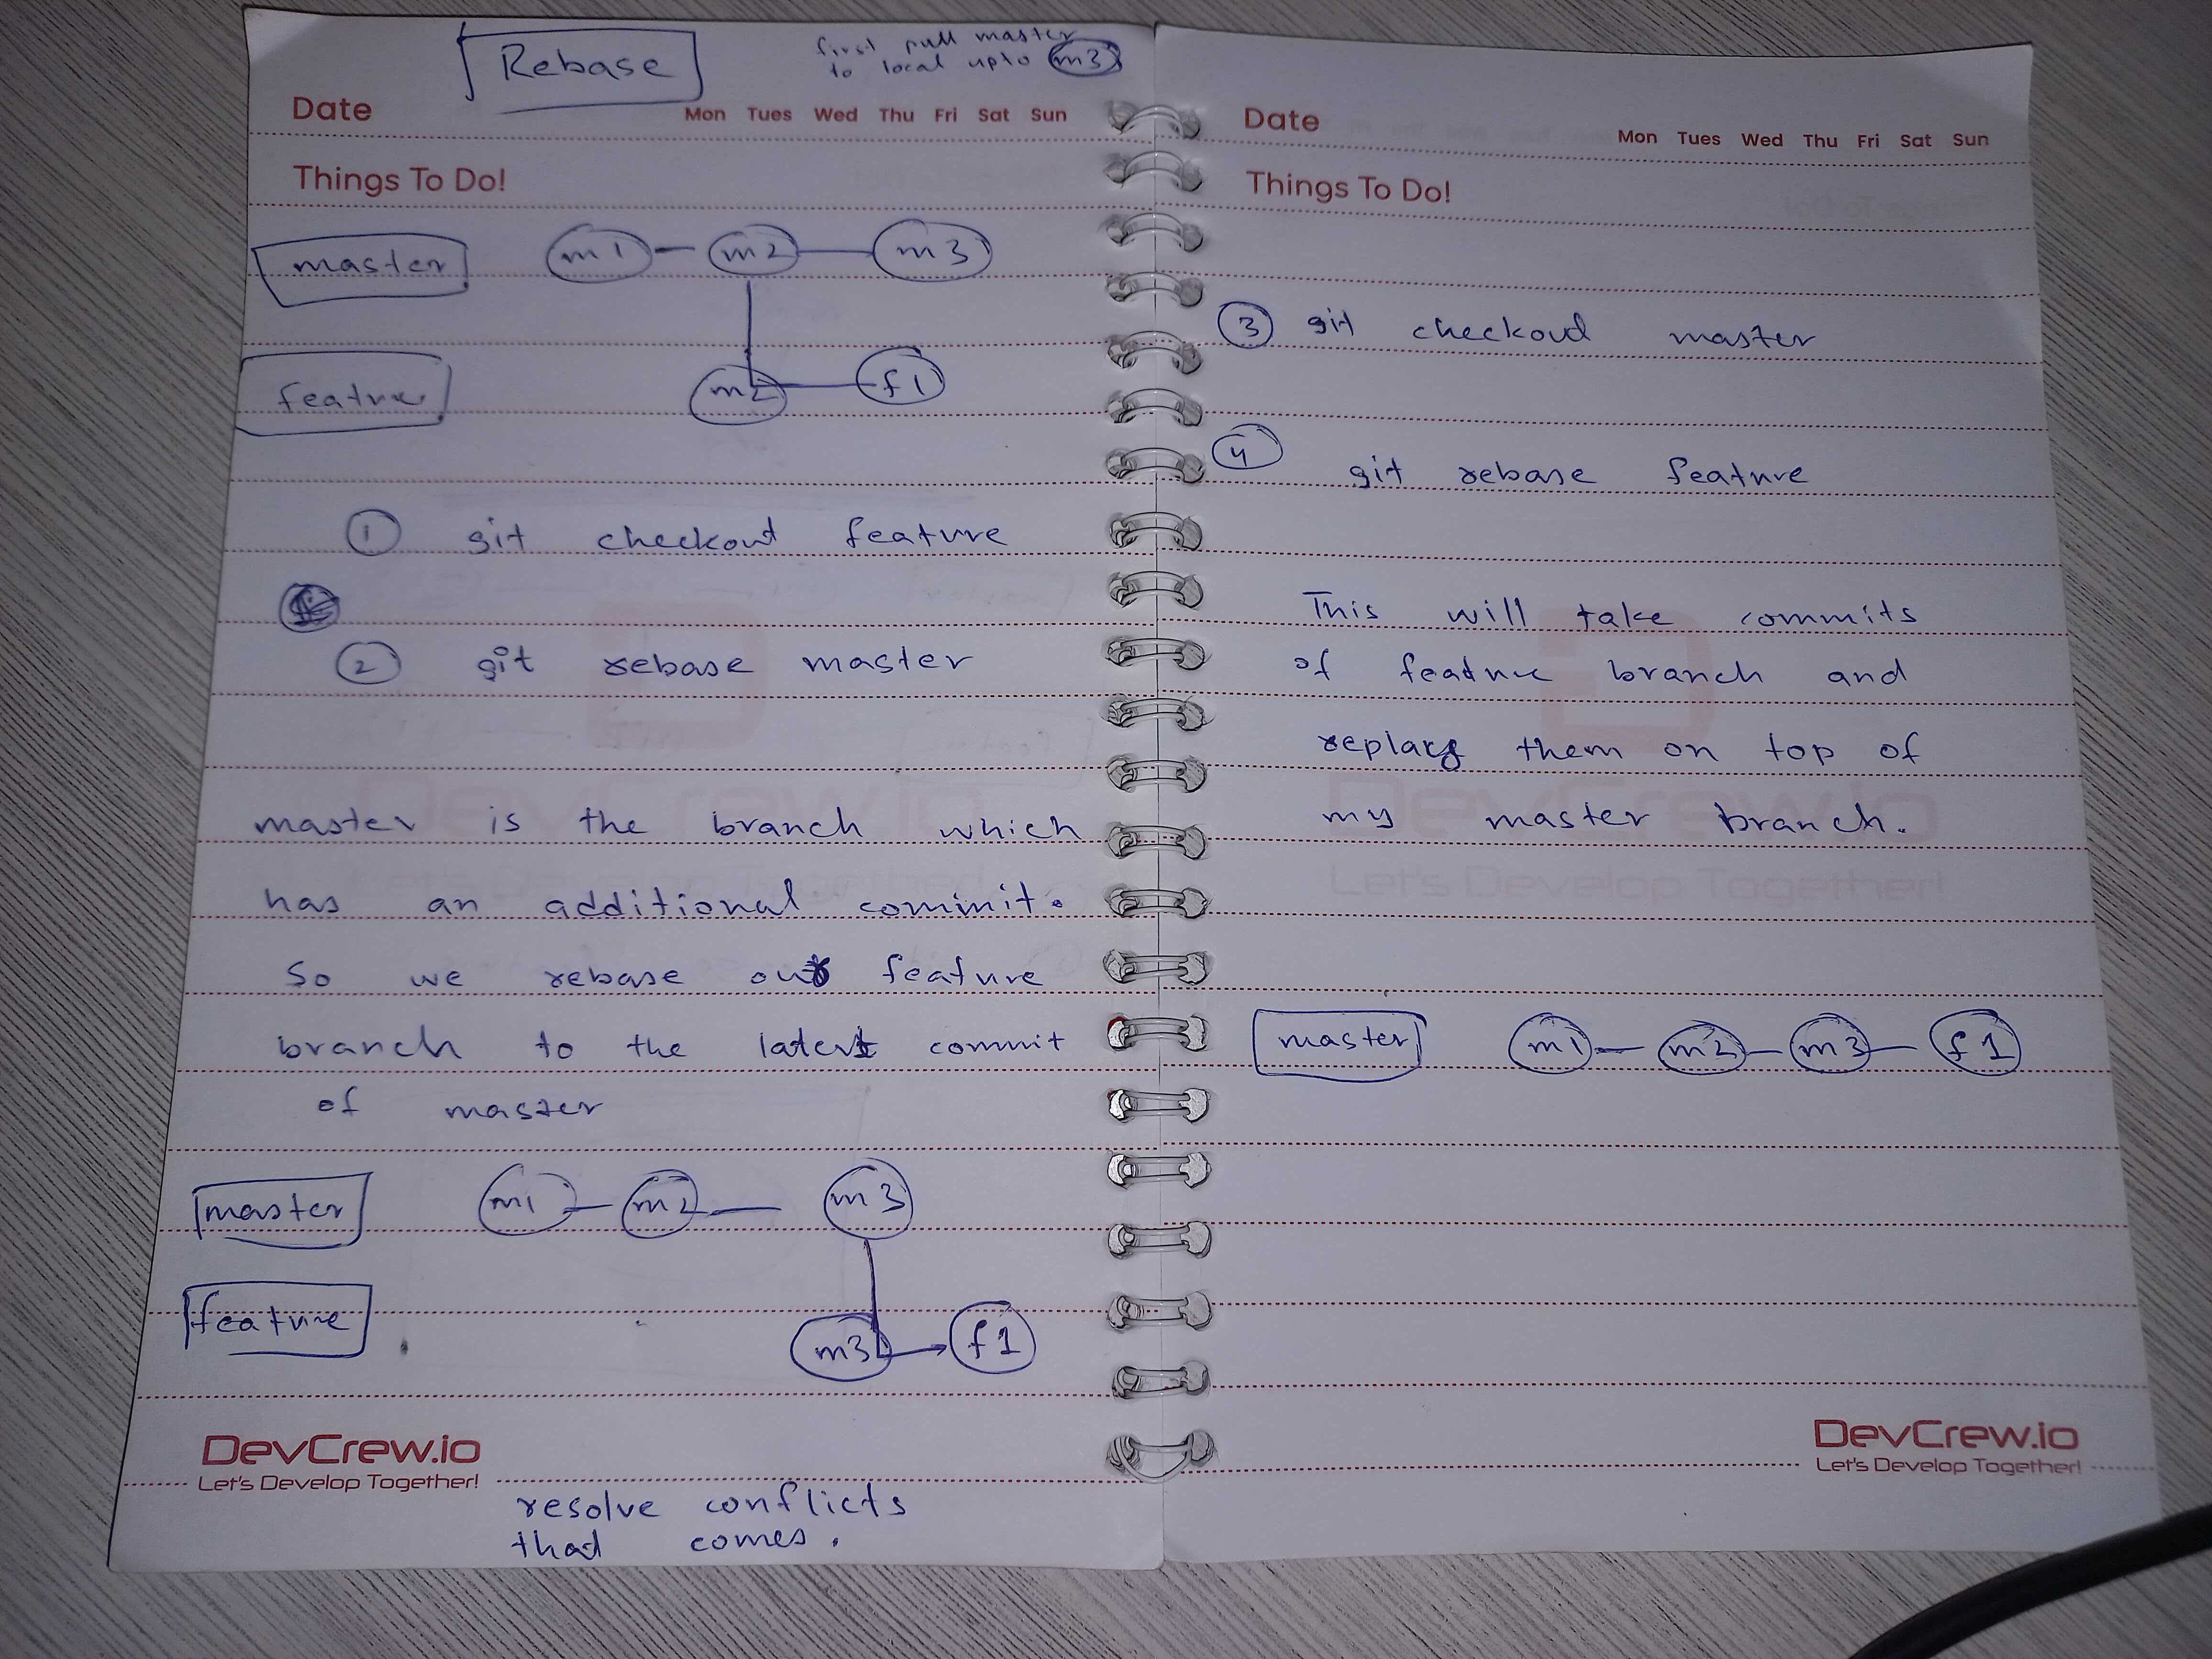 Rebase
first pull master
to local upto m3
Date Mon Tues Wed Thu Fri Sat Sun
Things To Do!
master m1 m2 m3
feature m2 f1
1 git checkout feature
2 git rebase master
master is the branch which
has an additional commit.
So we rebase out feature
branch to the latest commit
of master
master m1 m2 m3
feature m3 f1
DevCrew.io
Let's Develop Together!
resolve conflicts
that comes.
Date Mon Tues Wed Thu Fri Sat Sun
Things To Do!
3 git checkout master
4 git rebase feature
This will take commits
of feature branch and
replay them on top of
my master branch.
master m1 m2 m3 f1
DevCrew.io
Let's Develop Together!